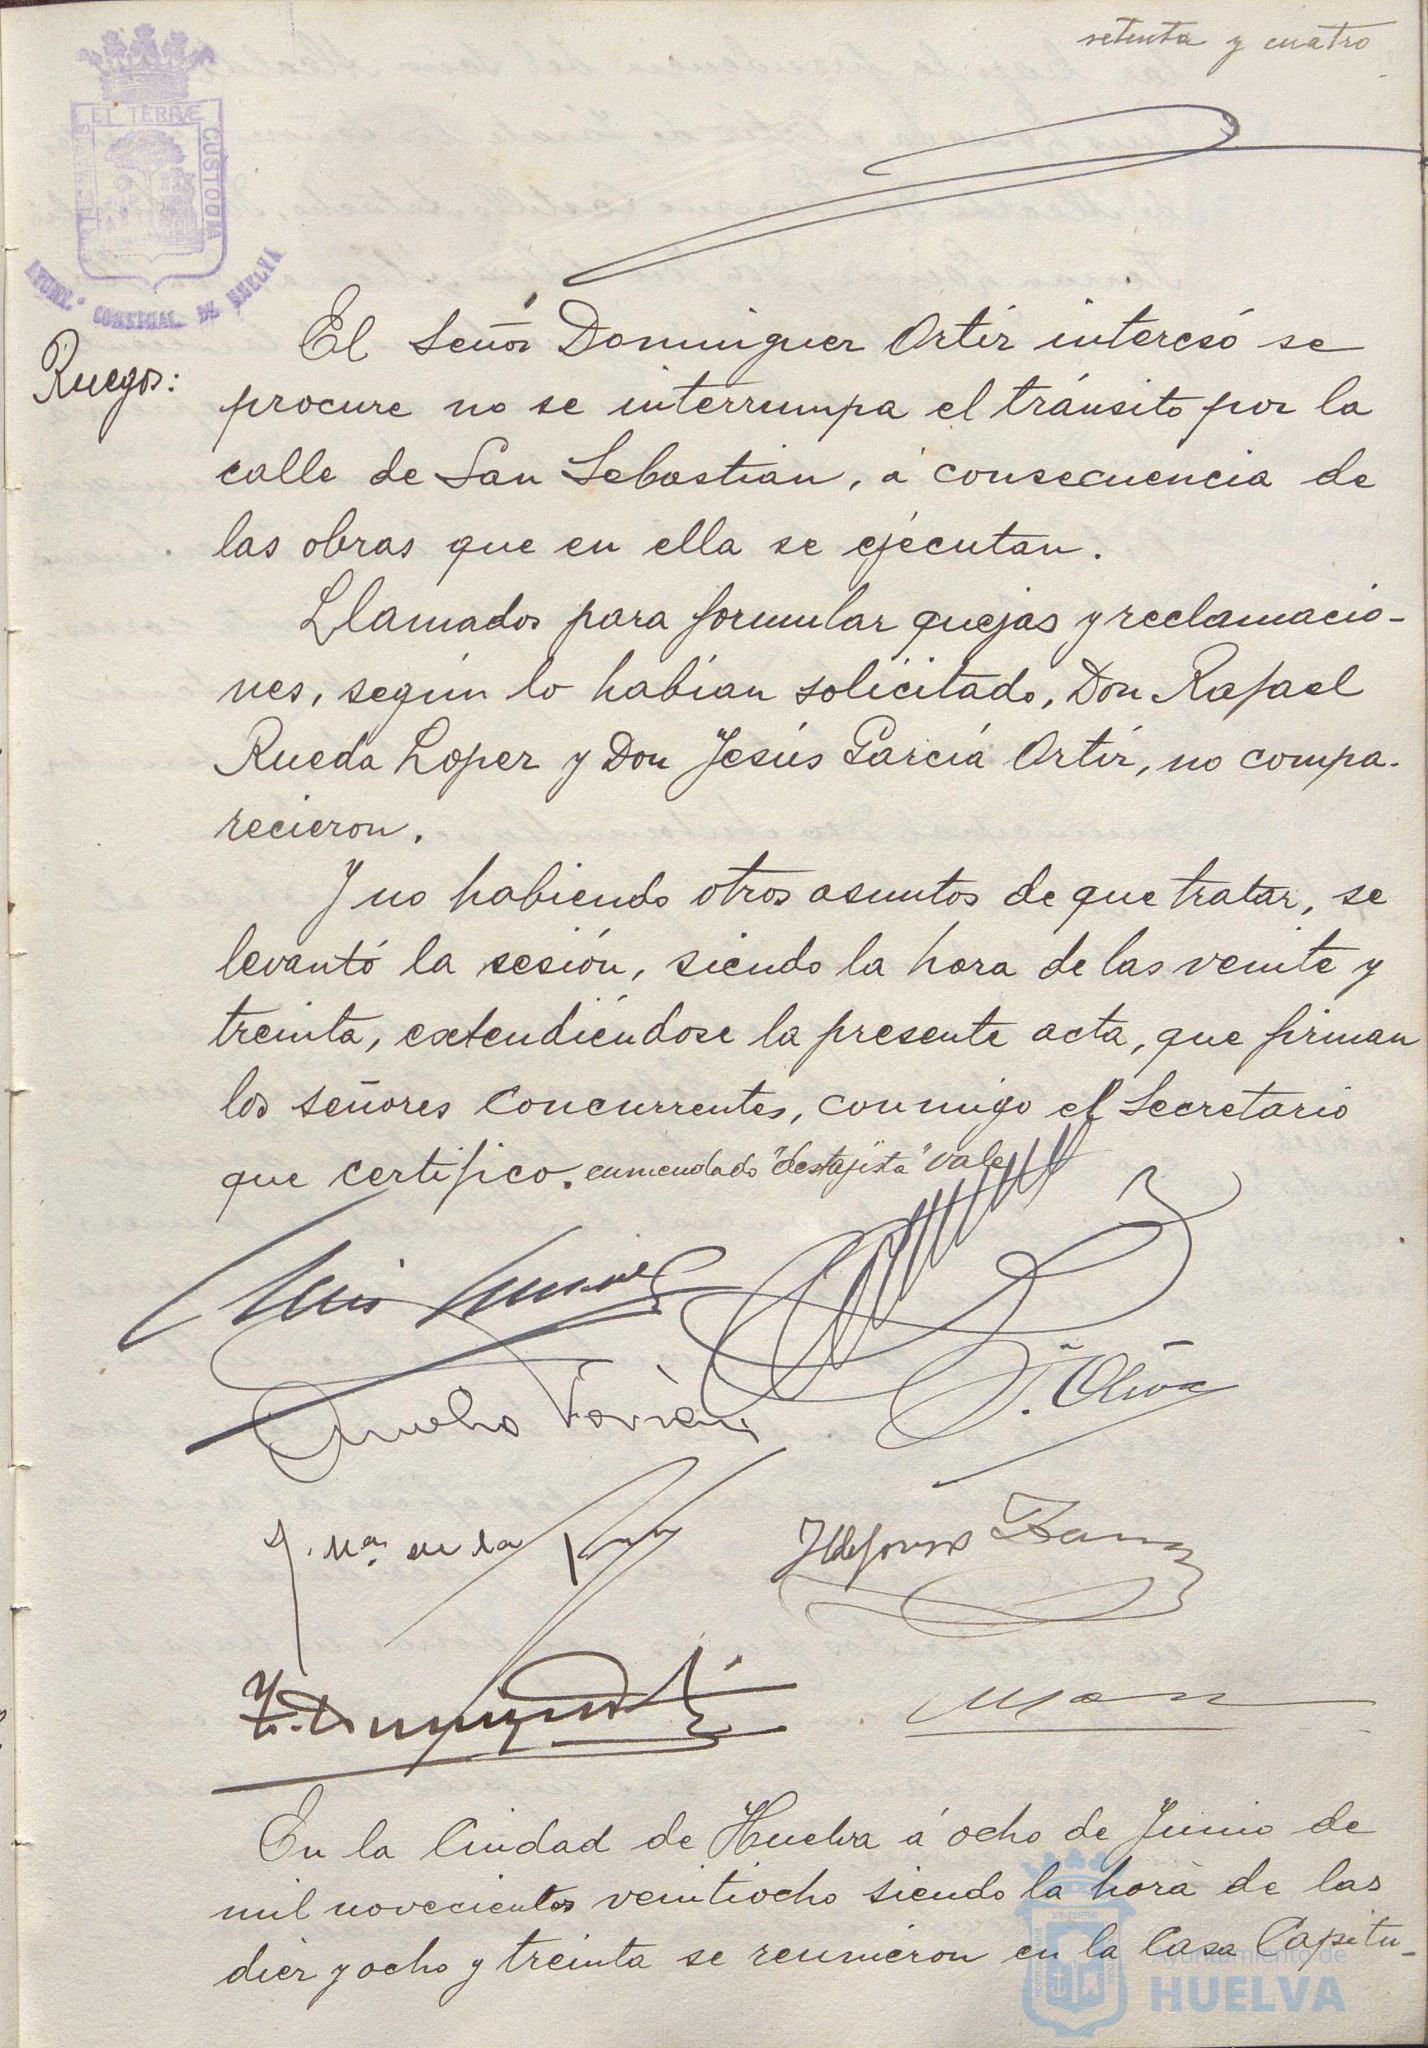 setenta y cuatro
ET TERRÆ
CUSTODIA
AYUNT. CONSTNAL. DE HUELVA
Ruegos:
El Señor Dominguez Ortiz interesó se
procure no se interrumpa el tránsito por la
calle de San Sebastian, á consecuencia de
las obras que en ella se ejecutan.
Llamados para formular quejas y reclamacio-
nes, según lo habían solicitado, Don Rafael
Rueda Lopez y Don Jesús García Ortiz, no compa-
recieron.
Y no habiendo otros asuntos de que tratar, se
levantó la sesión, siendo la hora de las veinte y
treinta, extendiéndose la presente acta, que firman
los señores concurrentes, conmigo el Secretario
que certifico. enmendado "destajista" vale
J. Oliva
J. Mª. de la
Ildefonso
En la Ciudad de Huelva á ocho de Junio de
mil novecientos veintiocho siendo la hora de las
diez y ocho y treinta se reunieron en la Casa Capitu-
Ayuntamiento de
HUELVA